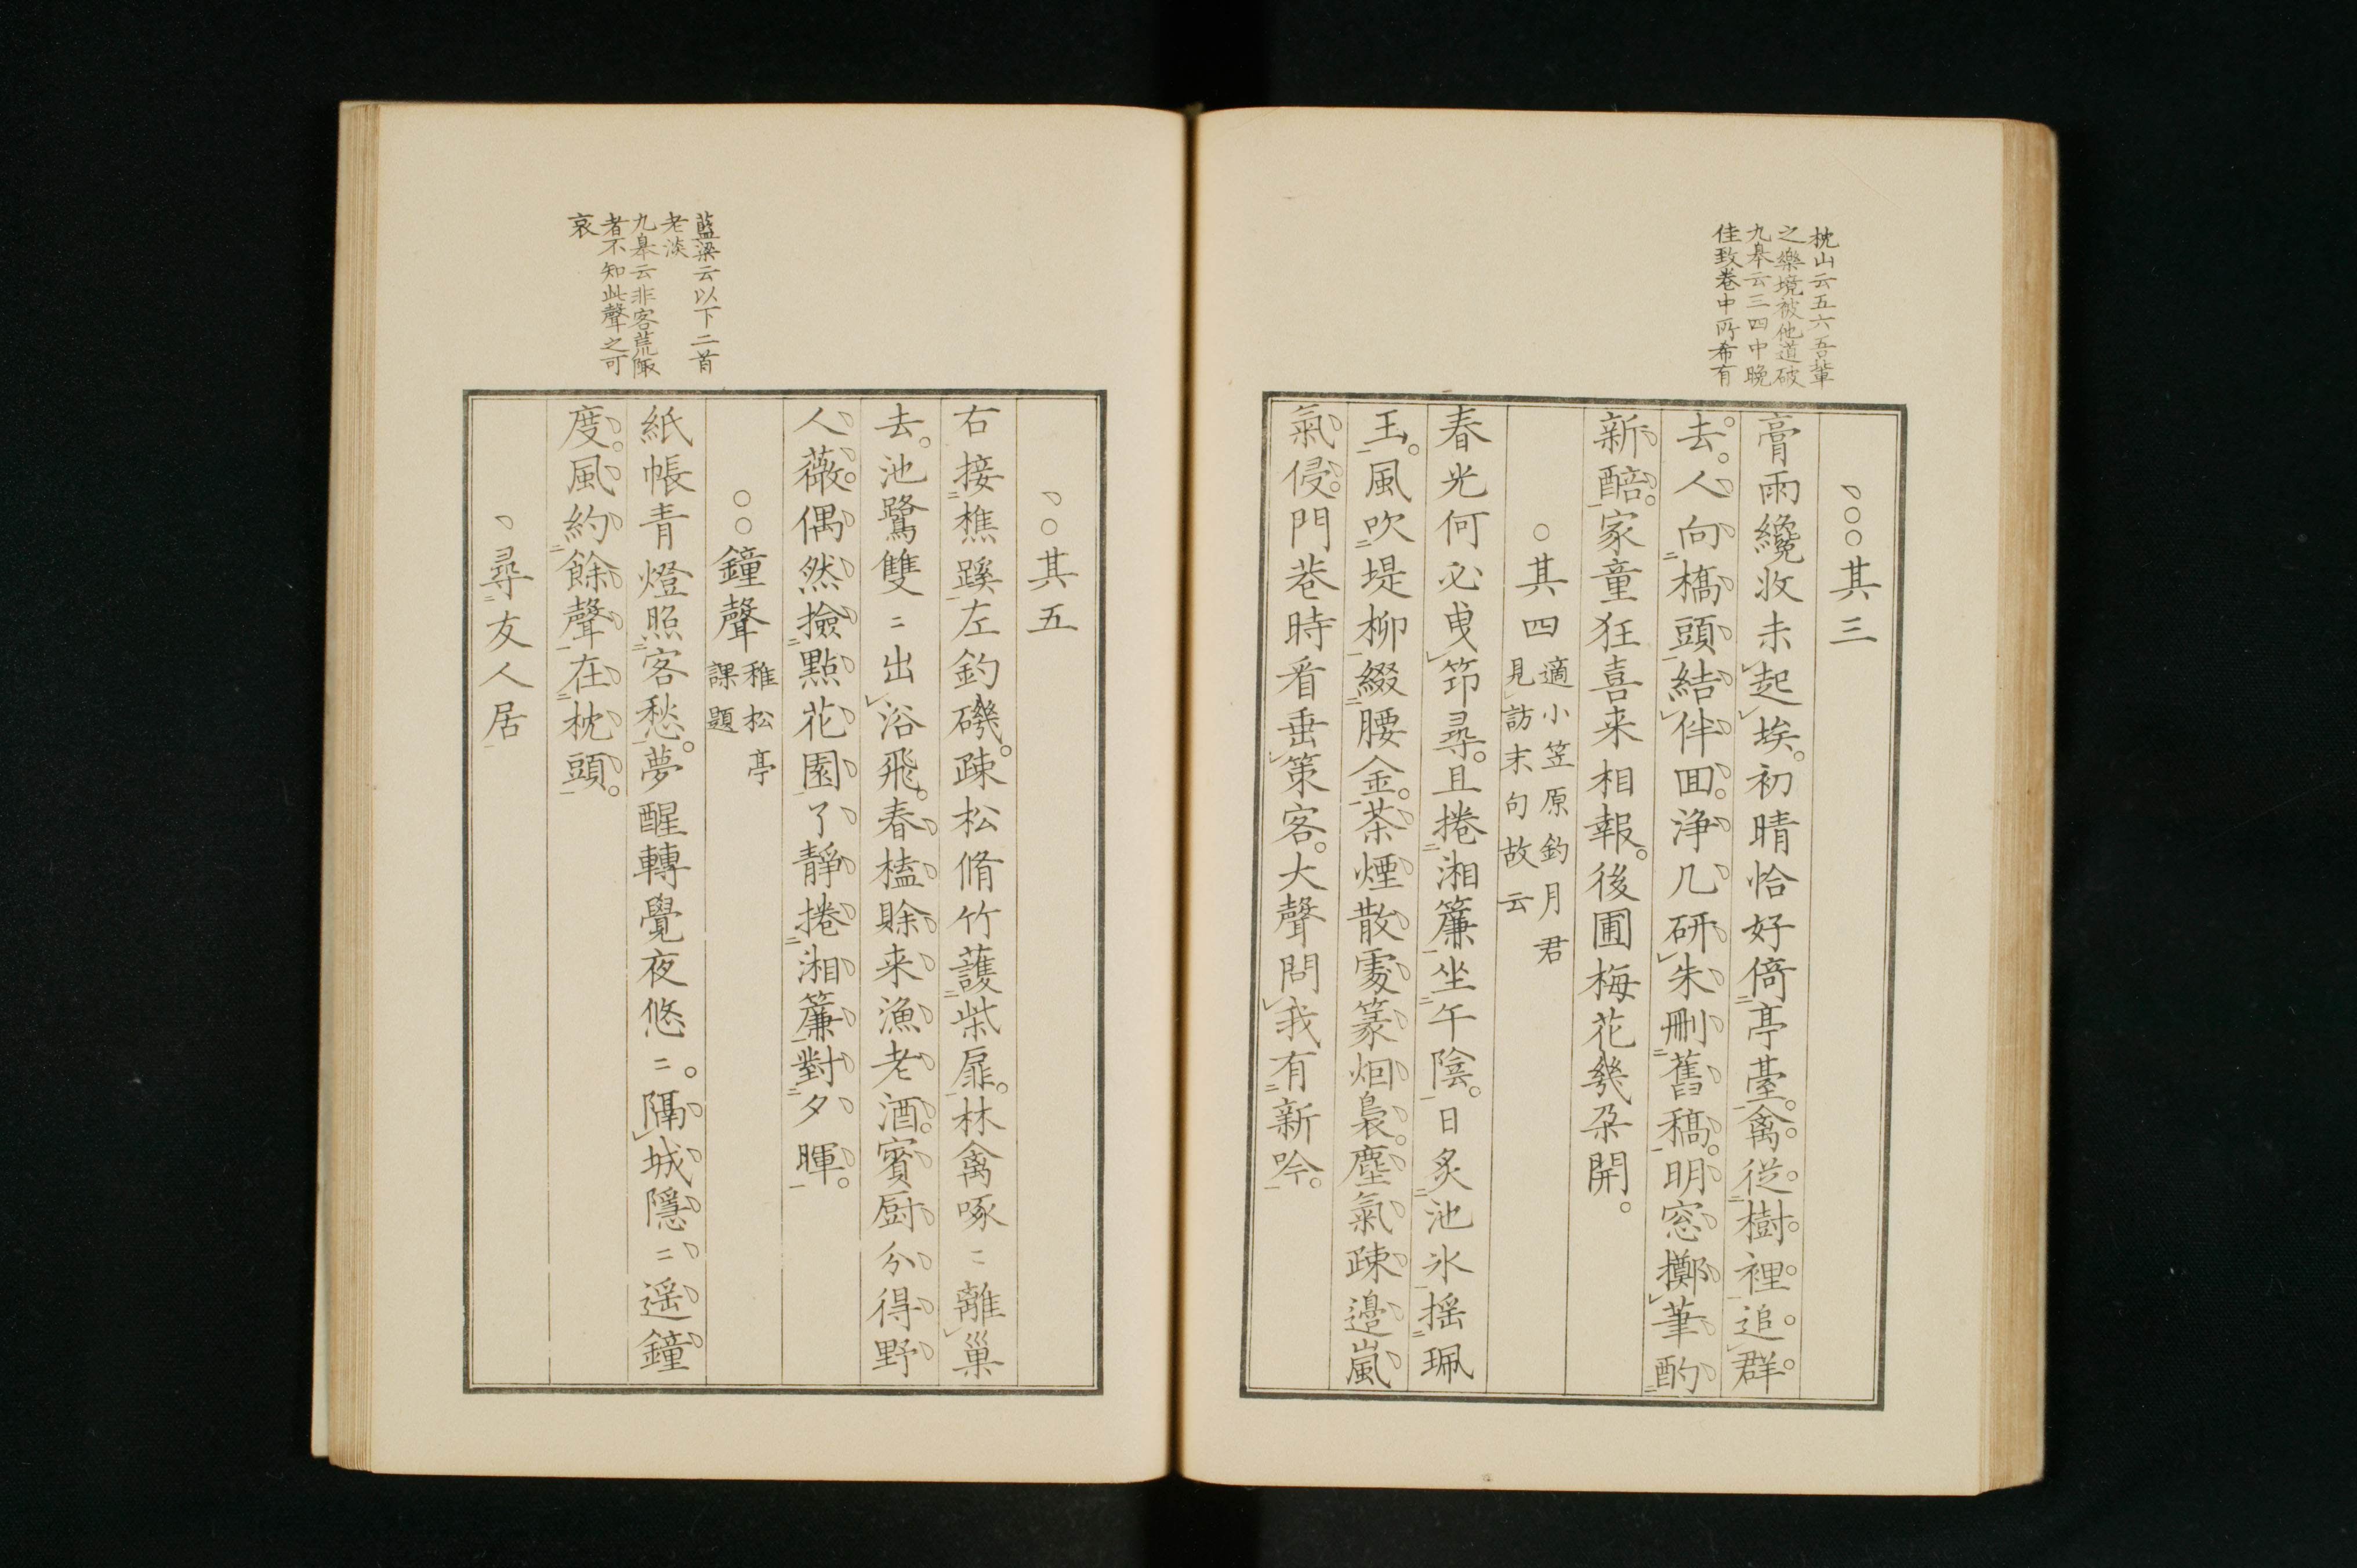 枕山云五六吾輩
之樂境被他道破
九皋云三四中晚
佳致卷中所希有
其三
膏雨纔收未起埃。初晴恰好倚亭臺。禽從樹裡追群
去。人向橋頭結伴囬。浄几研朱刪舊稿。明窓擲筆酌
新醅。家童狂喜来相報。後圃梅花幾朶開。
其四 適小笠原釣月君
見訪末句故云
春光何必曳笻尋。且捲湘簾坐午陰。日炙池氷揺珮
玉。風吹堤柳綴腰金。茶煙散處篆烟裊。塵氣疎邊嵐
氣侵。門巷時看垂策客。大聲問我有新吟。
藍梁云以下二首
老淡
九皋云非客荒陬
者不知此聲之可
哀
其五
右接樵蹊左釣磯。疎松脩竹護柴扉。林禽啄〻離巢
去。池鷺雙〻出浴飛。春榼賒来漁老酒。賓厨分得野
人薇。偶然撿點花園了。靜捲湘簾對夕暉。
鐘聲 稚松亭
課題
紙帳青燈照客愁。夢醒轉覺夜悠〻。隔城隱〻遥鐘
度。風約餘聲在枕頭。
尋友人居